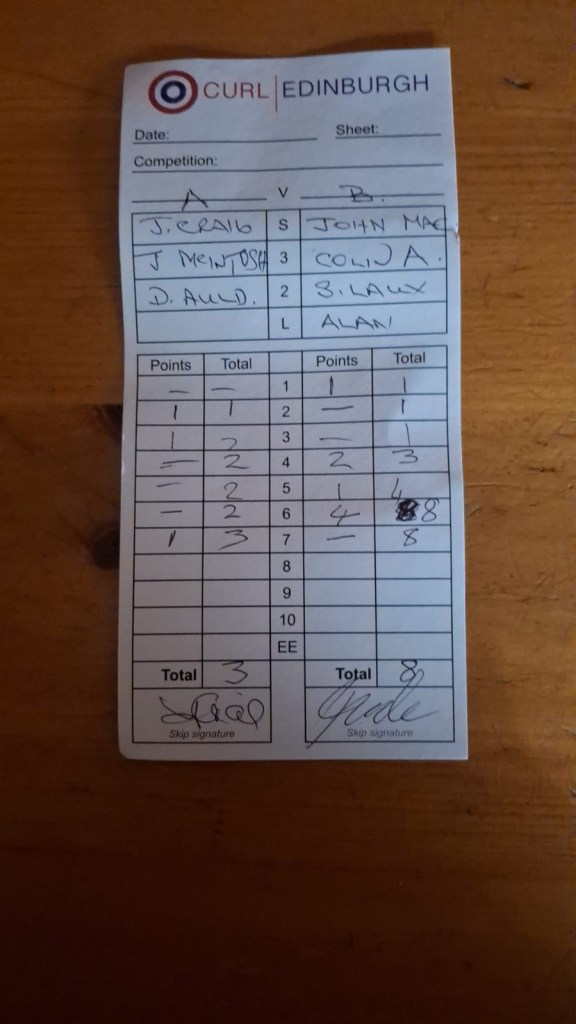 CURL | EDINBURGH
Date: Sheet:
Competition:
A V B.
J. CRAIG S JOHN MAC
J MCINTOSH 3 COLIN A.
D. AULD. 2 S. LAUX
L ALAN
Points Total Points Total
— — 1 1 1
1 1 2 — 1
1 2 3 — 1
— 2 4 2 3
— 2 5 1 4
— 2 6 4 8
1 3 7 — 8
8
9
10
EE
Total 3 Total 8
Skip signature Skip signature